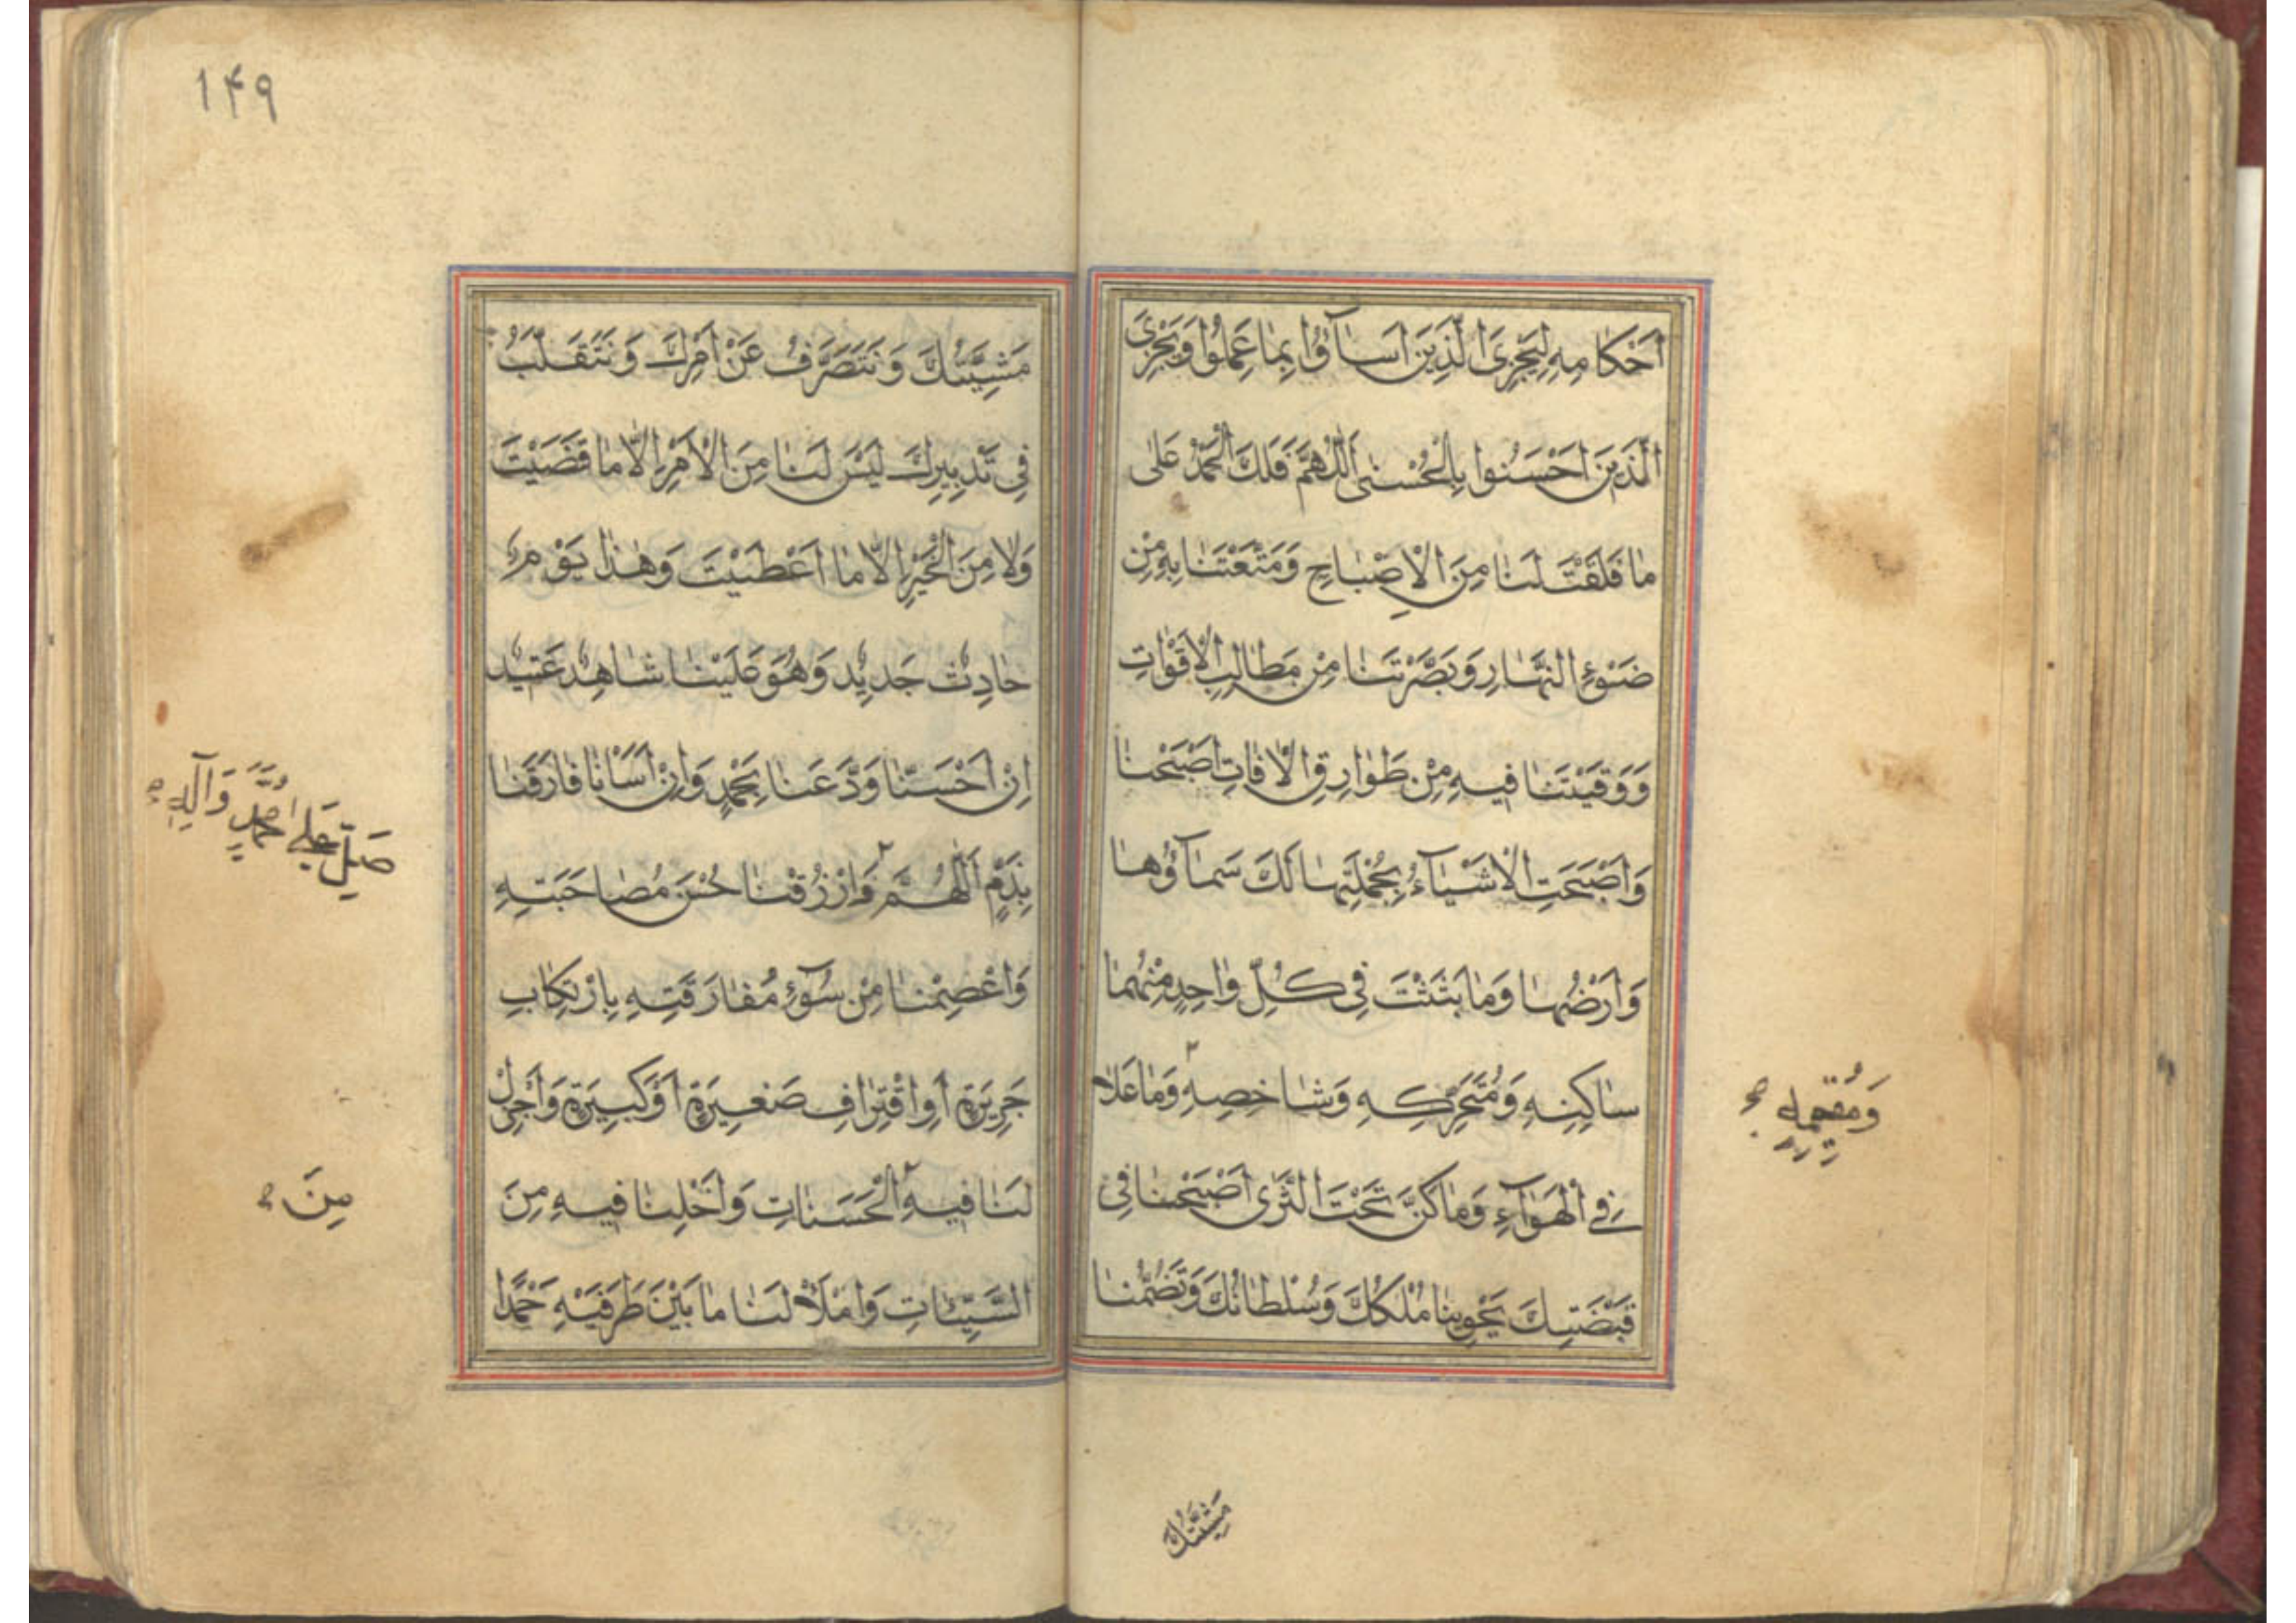 اَحْكٰامِهِ لِيَجْزِىَ الَّذِينَ اَسٰآؤُا بِمٰا عَمِلُوا وَيَجْزِىَ
الَّذِينَ اَحْسَنُوا بِالْحُسْنٰى اَللّٰهُمَّ فَلَكَ الْحَمْدُ عَلٰى
مٰا فَلَقْتَ لَنٰا مِنَ الْاِصْبٰاحِ وَمَتَّعْتَنٰا بِهِ مِنْ
ضَوْءِ النَّهٰارِ وَبَصَّرْتَنٰا مِنْ مَطٰالِبِ الْاَقْوٰاتِ
وَوَقَيْتَنٰا فِيهِ مِنْ طَوٰارِقِ الْاٰفٰاتِ اَصْبَحْنٰا
وَاَصْبَحَتِ الْاَشْيٰآءُ بِجُمْلَتِهٰا لَكَ سَمٰآؤُهٰا
وَاَرْضُهٰا وَمٰا بَثَثْتَ فِى كُلِّ وٰاحِدٍ مِنْهُمٰا
سٰاكِنِهِ وَمُتَحَرِّكِهِ وَشٰاخِصِهِ ۲ وَمٰا عَلاٰ
وَمُقِيمِهِ صح
فِى الْهَوٰآءِ وَمٰا كَنَّ تَحْتَ الثَّرٰى اَصْبَحْنٰا فِى
قَبْضَتِكَ يَحْوِينٰا مُلْكُكَ وَسُلْطٰانُكَ وَتَضُمُّنٰا
مَشِيَّتُكَ
۱۴۹
مَشِيَّتُكَ وَنَتَصَرَّفُ عَنْ اَمْرِكَ وَنَتَقَلَّبُ
فِى تَدْبِيرِكَ لَيْسَ لَنٰا مِنَ الْاَمْرِ اِلّاٰ مٰا قَضَيْتَ
وَلاٰ مِنَ الْخَيْرِ اِلّاٰ مٰا اَعْطَيْتَ وَهٰذٰا يَوْمٌ
حٰادِثٌ جَدِيدٌ وَهُوَ عَلَيْنٰا شٰاهِدٌ عَتِيدٌ
اِنْ اَحْسَنّٰا وَدَّعَنٰا بِحَمْدٍ وَاِنْ اَسَأْنٰا فٰارَقَنٰا
بِذَمٍّ اَللّٰهُمَّ ۲ وَارْزُقْنٰا حُسْنَ مُصٰاحَبَتِهِ
صَلِّ عَلٰى مُحَمَّدٍ وَآلِهِ صح
وَاعْصِمْنٰا مِنْ سُوٓءِ مُفٰارَقَتِهِ بِارْتِكٰابِ
جَرِيرَةٍ اَوِ اقْتِرٰافِ صَغِيرَةٍ اَوْ كَبِيرَةٍ وَاَجْزِلْ
لَنٰا فِيهِ ۲ الْحَسَنٰاتِ وَاَخْلِنٰا فِيهِ مِنَ
مِنَ
السَّيِّئٰاتِ وَامْلَأْ لَنٰا مٰا بَيْنَ طَرَفَيْهِ حَمْدًا